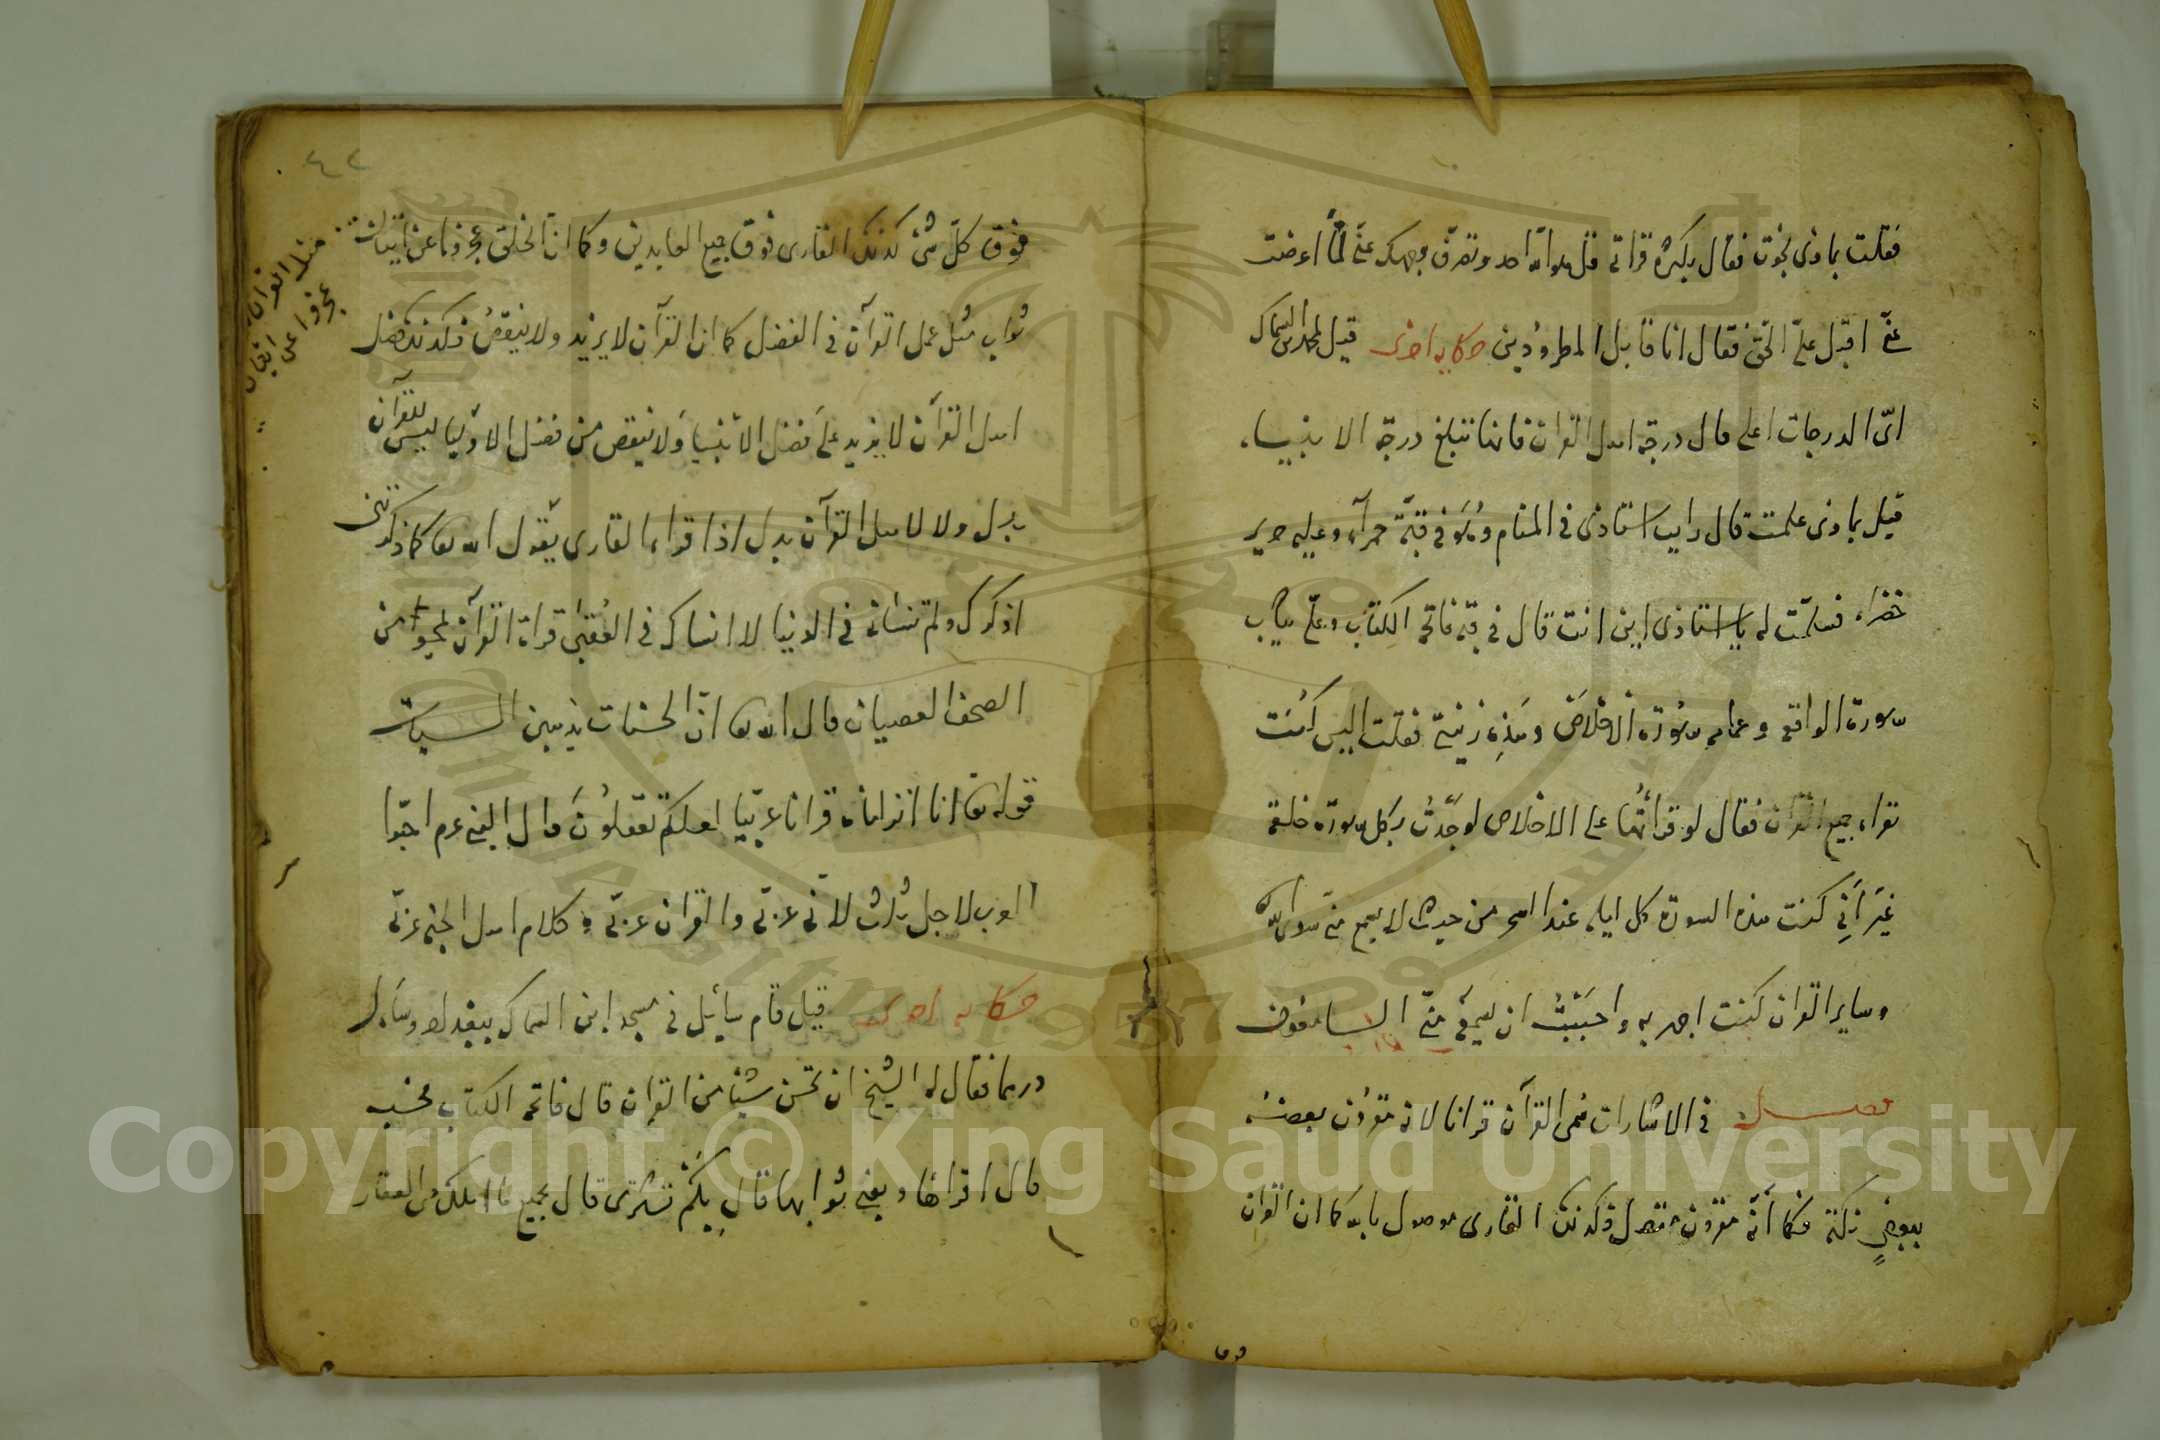 فقلت بماذى نجوت فقال بكثرة قراتى قل هو الله احد وتعرف وجهك عنى لما اعرضت
عنى اقبل على الحق فقال انا قابل المطرودين حكاية اخرى قيل لمحمد ابن السماك
اىّ الدرجات اعلى قال درجة اهل القران فانها تبلغ درجة الانبياء
قيل بماذى علمت قال رايت استاذى فى المنام وهو فى قبّة حمرآء وعليه حرير
خضراء فسلمت له يا استاذى اين انت قال فى قبة فاتحة الكتاب وعلى ثياب
سورة الواقعة وعمامه سورة الاخلاص وهذه زينتى فقلت اليس كنت
تقراء جميع القران فقال لو قرأتها على الاخلاص لوجدت بكل سورة خلعة
غير أنى كنت هذه السورة كل ليلة عند السحر من حيث لا يسمع منى سوى الله
وساير القران كنت اجهر به واحببت ان يسمع منى السامعون
فصل فى الاشارات سمى القرآن قرانا لانه مقرون بعضه
ببعض نكتة فكما أنه مقرون متصل فكذلك القارى موصول بالله كما ان القران
فوق
٤٢
فوق كلّ شئ كذلك القارى فوق جميع العابدين وكما ان الخلق عجزوا عن اتيان
مثل القران عجزوا عن اتيان
ثواب مثل عمل القرآن فى الفضل كما ان القرآن لا يزيد ولا ينقص فكذلك فضل
اهل القرآن لا يزيد على فضل الانبيا ولا ينقص من فضل الاوليا ليس للقران
بدل ولا لاهل القرآن بدل اذا قراء القارى يقول الله تعا كما ذكرتنى
اذكرك ولم تنسانى فى الدنيا لا انساك فى العقبى قراة القرآن لمحوا من
الصحف العصيان قال الله تعا انّ الحسنات يذهبن السيات
قوله تعا انا انزلناه قرانا عربيا لعلكم تعقلون قال النبى عم احبّوا
العرب لاجل ثلاث لانّى عربّى والقران عربّى وكلام اهل الجنة عربّى
حكاية اخرى قيل قام سايل فى مسجد ابن السماك ببغداد وسأل
درهما فقال له الشيخ ان تحسن شيئا من القران قال فاتحة الكتاب فحسب
قال اقراها وبعنى ثوابها قال بكم تشترى قال بجميع ما املك من العقار
Copyright © King Saud University
1957